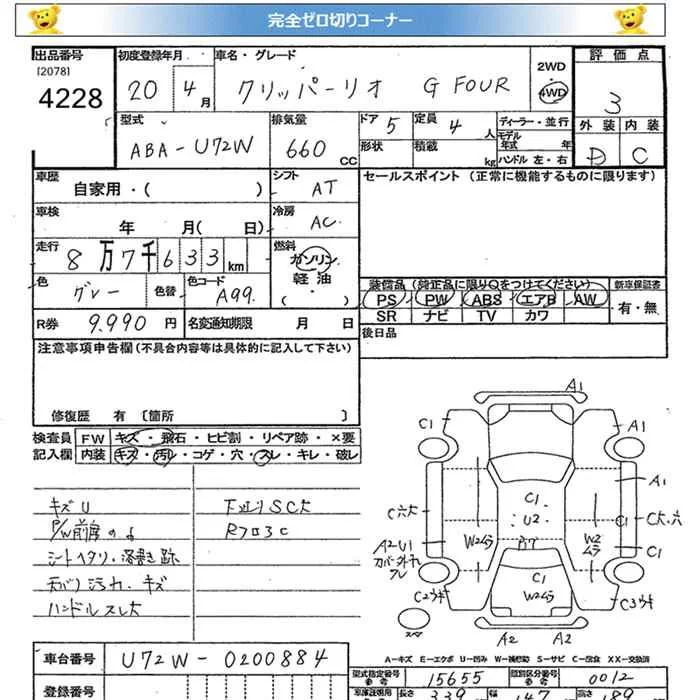 完全ゼロ切りコーナー
出品番号 初度登録年月 車名・グレード 2WD 評価点
[2078]
4228 20 4月 クリッパーリオ G FOUR 4WD 3
型式 排気量 ドア 5 定員 4人 ディーラー・並行 外装 内装
ABA-U72W 660cc 形状 積載 kg モデル年式 年 D C
ハンドル 左・右
車歴 シフト セールスポイント (正常に機能するものに限ります)
自家用・( ) AT
車検 冷房
年 月( 日) AC
走行 燃料
8万7千633km ガソリン
軽油
(・)
色 グレー 色替 色コード A99 装備品 (純正品に限り○をつけてください) 新車保証書
PS PW ABS エアB AW 有・無
SR ナビ TV カワ
R券 9,990円 名変通知期限 月 日 後日品
注意事項申告欄 (不具合内容等は具体的に記入して下さい)
修復歴 有 〔箇所 〕
検査員 FW キズ・飛石・ヒビ割・リペア跡・×要
記入欄 内装 キズ・汚レ・コゲ・穴・スレ・キレ・破レ
キズU 下廻りSC大
P/W前席のみ Rフロ3C
シートヘタリ・落書き跡
天バリ汚れ・キズ
ハンドルスレ大
A1
C1
A1
A1
C1
C六大
U2
C1
C大、六
A2U1
W2ムラ
W2ムラ
C1
C1
C2ウキ
W2ムラ
C3ウキ
A2
A2
A-キズ E-エクボ U-凹み W-補修跡 S-サビ C-腐食 XX-交換済
車台番号 U72W-0200884
型式指定番号 15655 類別区分番号 0012
登録番号 長さ 339 幅 147 高さ 189